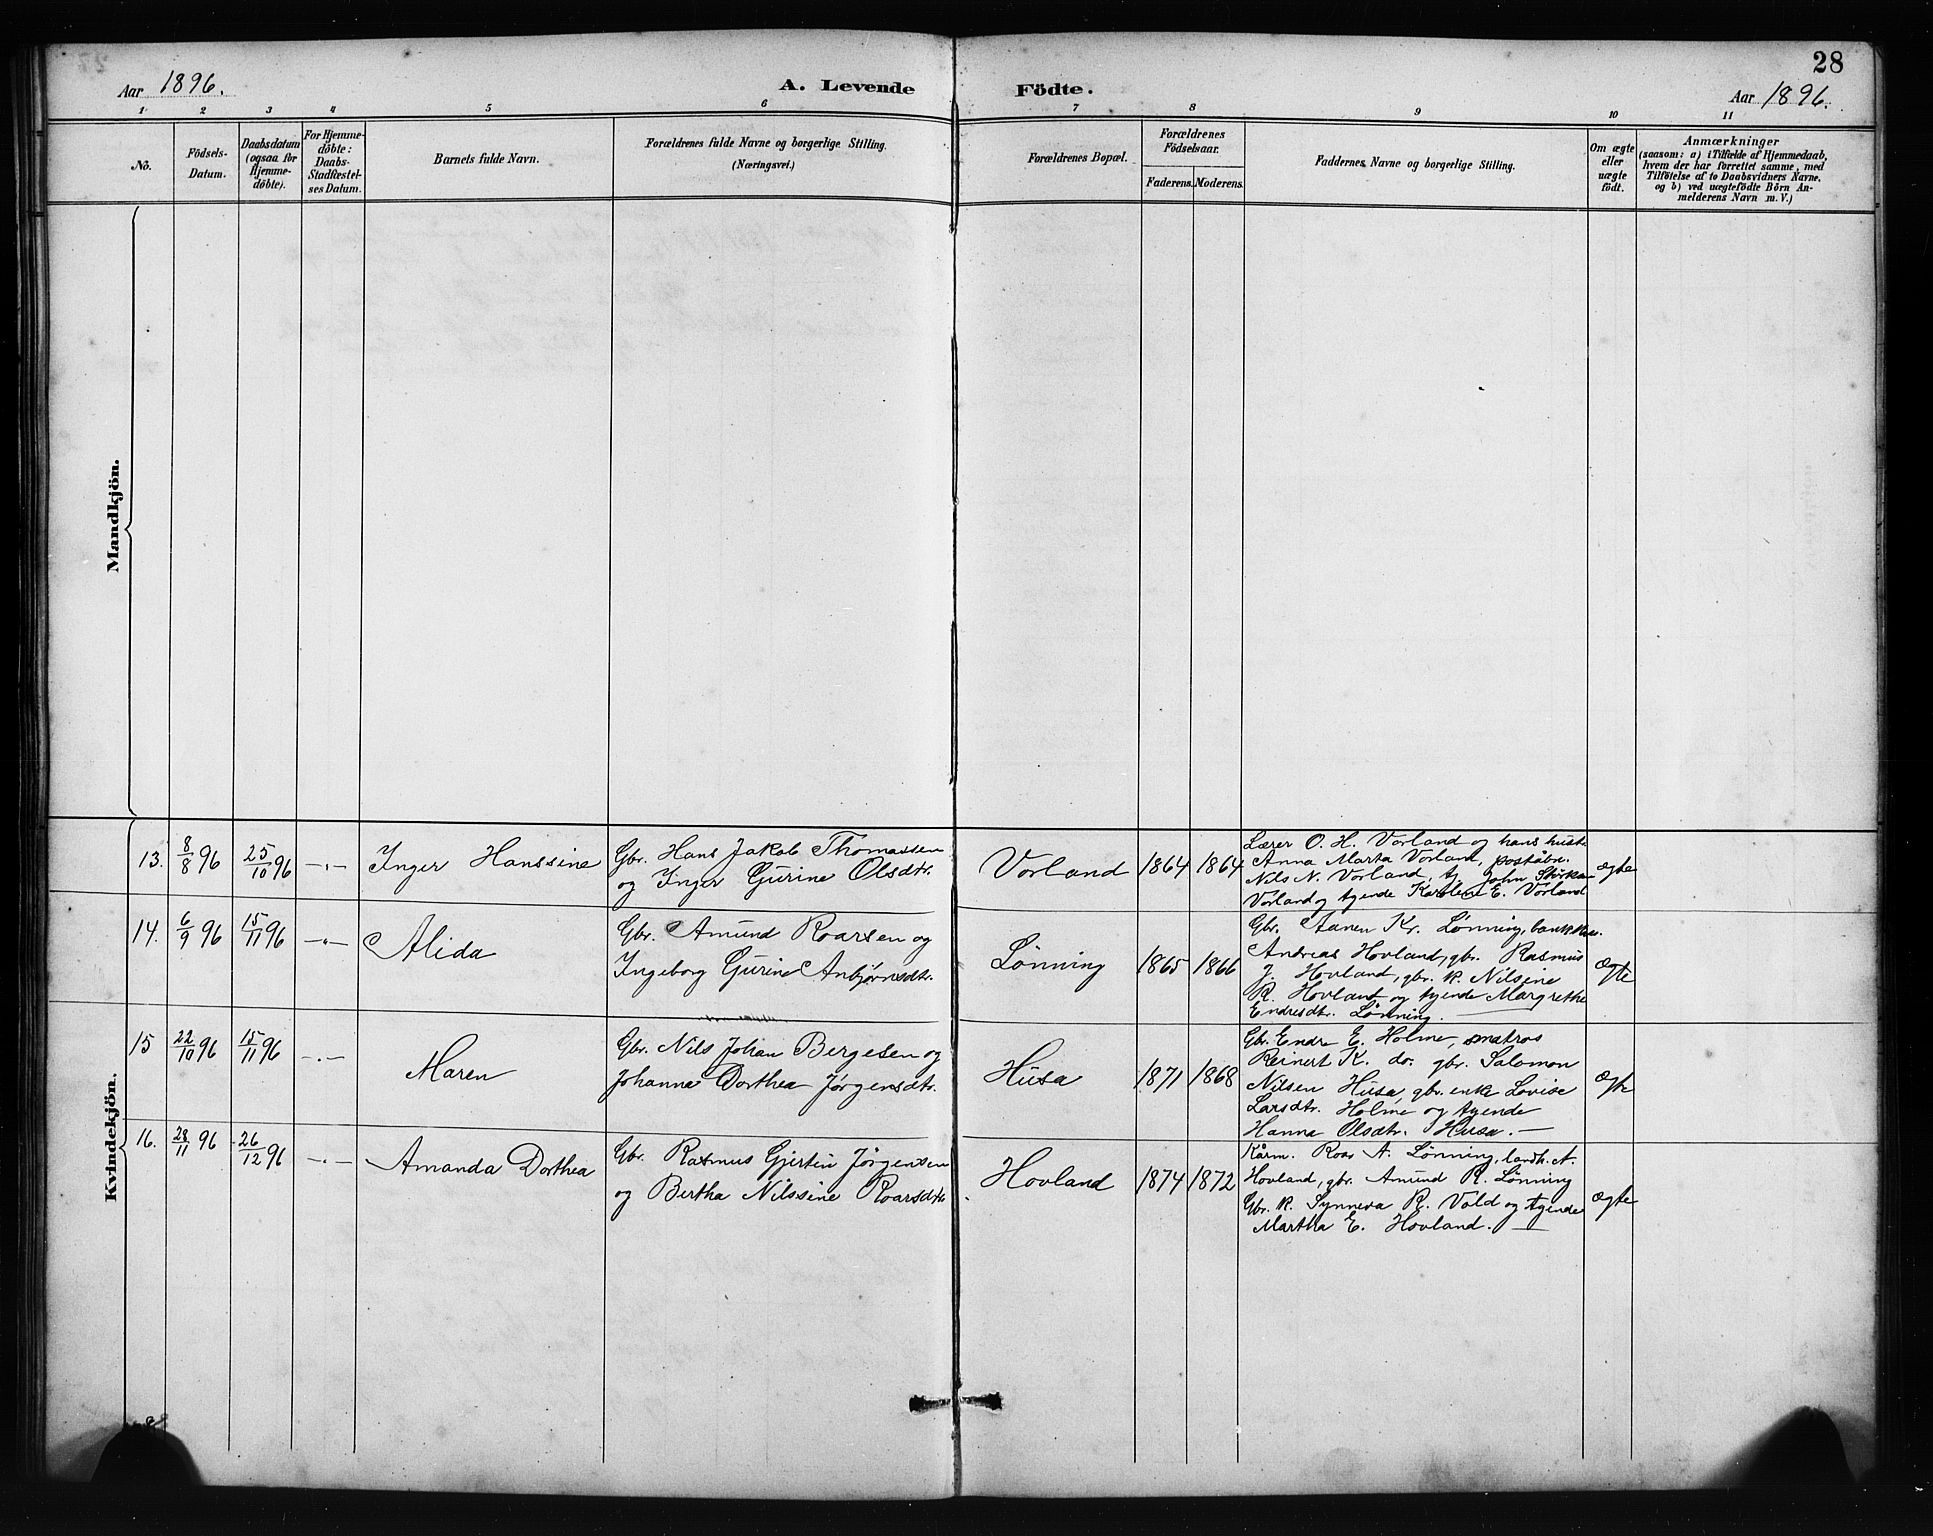 28
Aar 1896.
A. Levende Födte.
Aar 1896.
1 2 3 4 5 6 7 8 9 10 11
No.
Födsels-
Datum.
Daabsdatum
(ogsaa for
Hjemme-
döbte).
For Hjemme-
döbte:
Daabs-
Stadfæstel-
ses Datum.
Barnets fulde Navn.
Forældrenes fulde Navne og borgerlige Stilling.
(Næringsvei.)
Forældrenes Bopæl.
Forældrenes
Födselsaar.
Faderens. Moderens.
Faddernes Navne og borgerlige Stilling.
Om ægte
eller
uægte
födt.
Anmærkninger
(saasom: a) i Tilfælde af Hjemmedaab,
hvem der har forrettet samme, med
Tilföielse af to Daabsvidners Navne.
og b) ved uægtefödte Börn An-
melderens Navn m. V.)
Mandkjön.
Kvindekjön.
13.
8/8 96
25/10 96
-„-
Inger Hanssine
Gbr. Hans Jakob Thomassen
og Inger Gurine Olsdtr.
Vorland
1864
1864
Lærer O. H. Vorland og hans hustr.
Anna Marta Vorland, poståbn.
Nils N. Vorland, tj. John
Vorland og tjende Karolene E. Vorland
ægte
14.
6/9 96
15/11 96
-„-
Alida
Gbr. Amund Roarsen og
Ingeborg Gurine Anbjørnsdtr.
Lønning
1865
1866
Gbr. Aanen Kr. Lønning,
Andreas Hovland, gbr. Rasmus
J. Hovland, gbr. k. Nilsine
R. Hovland og tjende Margrethe
Endresdtr. Lønning.
ægte
15
22/10 96
15/11 96
-„-
Maren
Gbr. Nils Johan Bergesen og
Johanne Dorthea Jørgensdtr.
Husa
1871
1868
Gbr. Endre E. Holme, matros
Reinert K. do. gbr. Salomon
Nilsen Husa, gbr. enke Lovise
Larsdtr. Holme og tjende
Hanna Olsdtr. Husa.
ægte
16.
28/11 96
26/12 96
-„-
Amanda Dorthea
Gbr. Rasmus Gjertin Jørgensen
og Bertha Nilssine Roarsdtr
Hovland
1874
1872
Kårm. Roar A. Lønning, landh. A.
Hovland, gbr. Amund R. Lønning
Gbr. k. Synneva R. Vold og tjende
Martha E. Hovland.
ægte